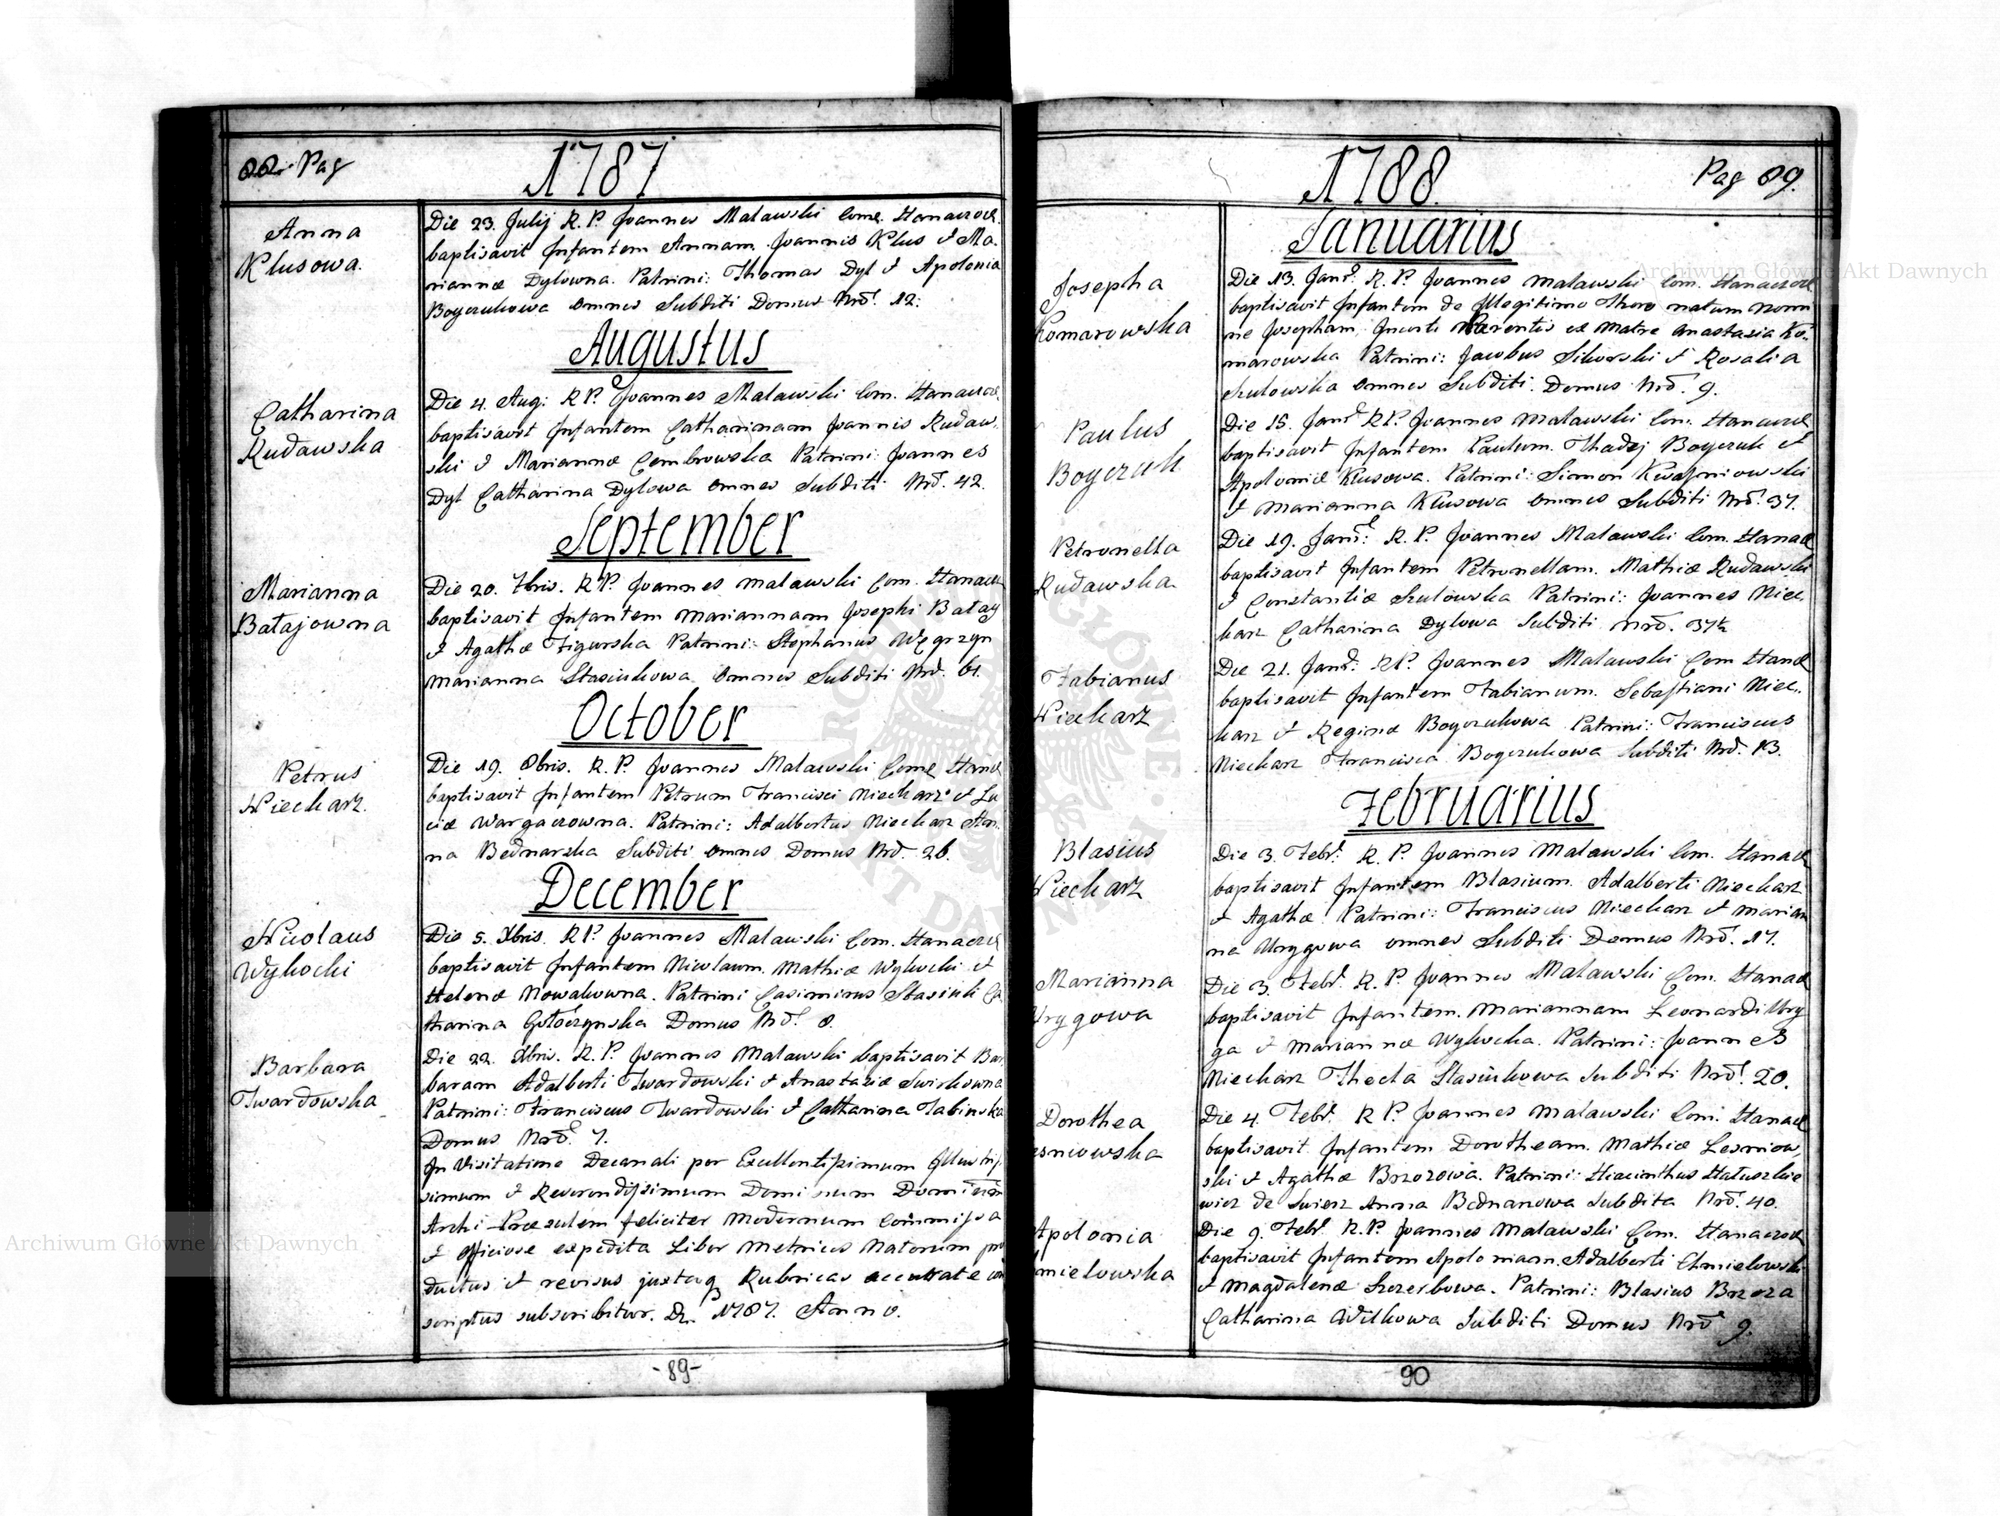 88. Pag
1787
Anna
Klusowa.
Die 23. Julij R. P. Joannes Malawski Come. Hanaczov.
baptisavit Infantem Annam. Joannis Klus & Ma.
riannæ Dylowna. Patrini: Thomas Dyl & Apolonia
Boyczukowa omnes Subditi Domus Nrō. 12.
Augustus
Catharina
Rudawska
Die 4. Aug: R P. Joannes Malawski Com. Hanaczov.
baptisavit Infantem Catharinam Joannis Rudaw.
ski & Mariannæ Cembrowska Patrini: Joannes
Dyl Catharina Dylowa omnes Subditi Nrō. 42.
September
Marianna
Batajowna
Die 20. 7bris. R P. Joannes Malawski Com. Hanacz
baptisavit Infantem Mariannam Josephi Batay
& Agathæ Figurska Patrini: Stephanus Węgrzyn
Marianna Stasiukowa omnes Subditi Nrō. 61.
October
Petrus
Nieckarz.
Die 19. 8bris. R. P. Joannes Malawski Come Hana
baptisavit Infantem Petrum Francisci Nieckarz & Lu
ciæ Wargaczowna. Patrini: Adalbertus Nieckarz An.
na Bednarzka Subditi omnes Domus Nrō. 26.
December
Nicolaus
Wykocki
Die 5. Xbris. R P. Joannes Malawski Com. Hanaczov
baptisavit Infantem Nicolaum. Mathiæ Wykocki &
Helenæ Nowakowna. Patrini Casimirus Stasiuk Ca
tharina Domus Nrō. 8.
Barbara
Twardowska
Die 22. Xbris. R. P. Joannes Malawski baptisavit Bar
baram Adalberti Twardowski & Anastaziæ Swirkowna
Patrini: Franciscus Twardowski & Catharina Tabinska
Domus Nrō. 7.
In Visitatione Decanali per Excellentissimum Illustris
simum & Reverendissimum Dominum Dominum
Archi-Præsulem feliciter Modernum Commissa
& officiose expedita Liber Metrices Natorum pro
ductus & revisus juxtaq Rubricas accurate con
scriptus subscribitur. D. 1787. Anno.
-89-
1788.
Pag 89.
Januarius
Josepha
Komarowska
Die 13. Janr. R. P. Joannes Malawski Com. Hanaczov
baptisavit Infantem de Illegitimo Thoro natum Nomi
ne Josepham. Incerti Parentis ex Matre Anastasia Ko.
marowska Patrini: Jacobus Sikorski & Rosalia
Szulowska omnes Subditi. Domus Nrō. 9.
Paulus
Boyczuk
Die 15. Janr R P. Joannes Malawski Com. Hanaczov
baptisavit Infantem Paulum. Thadej Boyczuk &
Apoloniæ Klusowa. Patrini: Simon Kwasniowski
& Marianna Klusowa omnes Subditi Nrō. 37.
Petronella
Rudawska
Die 19. Janr: R. P. Joannes Malawski Com. Hanacz
baptisavit Infantem Petronellam. Mathiæ Rudawski
& Constantiæ Szulowska Patrini: Joannes Niec.
karz Catharina Dylowa Subditi Nrō. 37½
Fabianus
Nieckarz
Die 21. Janr: R P. Joannes Malawski Com Hanac
baptisavit Infantem Fabianum. Sebastiani Niec.
karz & Reginæ Boyczukowa Patrini: Franciscus
Nieckarz Francisca Boyczukowa Subditi Nrō. 13.
Februarius
Blasius
Nieckarz
Die 3. Febr. R. P. Joannes Malawski Com. Hanacz
baptisavit Infantem Blasium. Adalberti Nieckarz
& Agathæ Patrini: Franciscus Nieckarz & Marian
na Urygowa omnes Subditi Domus Nrō. 17.
Marianna
Urygowa
Die 3. Febr. R. P. Joannes Malawski Com. Hanacz
baptisavit Infantem. Mariannam Leonardi Ury
ga & Mariannæ Wykocka. Patrini: Joannes
Nieckarz Thecla Stasiukowa Subditi Nrō. 20.
Dorothea
esniowska
Die 4. Febr. R P. Joannes Malawski Com. Hanacz
baptisavit Infantem Dorotheam. Mathiæ Lesniow
ski & Agathæ Brzozowa. Patrini: Hiacinthus
wicz de Swierz Anna Bednanowa Subdita Nrō. 40.
Apolonia
mielowska
Die 9. Febr. R. P. Joannes Malawski Com. Hanaczov
baptisavit Infantem Apoloniam. Adalberti Chmielowski
& Magdalenæ Szczerbowa. Patrini: Blasius Brzoza
Catharina Wilkowa Subditi Domus Nrō 9.
90
Archiwum Główne Akt Dawnych
Archiwum Główne Akt Dawnych